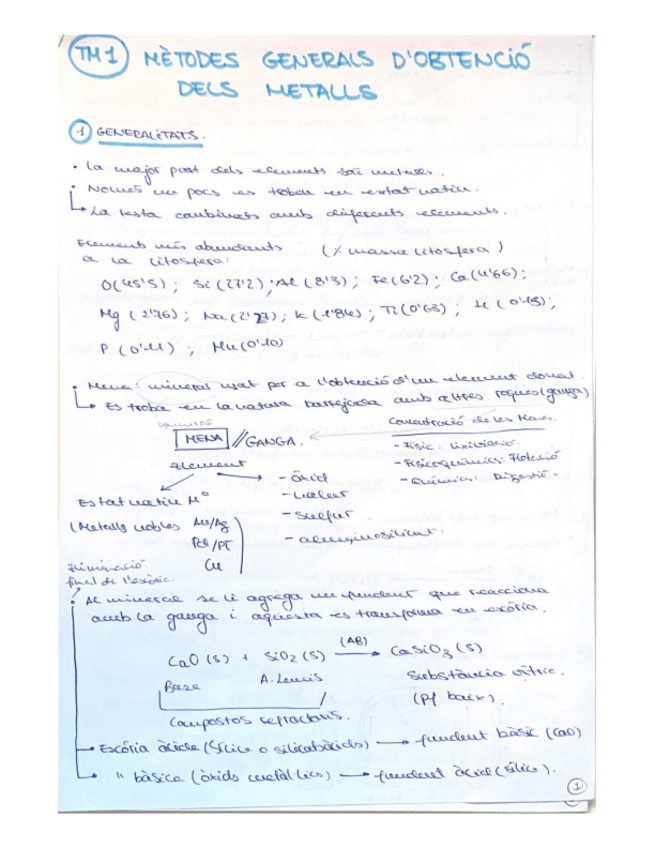 TM1 MÈTODES GENERALS D'OBTENCIÓ
DELS METALLS
1 GENERALITATS.
• La major part dels elements són metalls.
• Només uns pocs es troben en estat natiu.
La resta combinats amb diferents elements.
Elements més abundants (% massa litosfera)
a la litosfera:
O(45'5); Si(27'2); Al(8'3); Fe(6'2); Ca(4'66);
Mg(2'76); Na(2'27); K(1'84); Ti(0'63); H(0'15);
P(0'11); Mn(0'10)
• Mena: mineral usat per a l'obtenció d'un element donat.
Es troba en la natura barrejada amb altres roques (ganga)
MENA // GANGA.
Concentració de les Menes.
- Físic: Lixiviació.
- Fisicoquímics: Flotació
- Químics: Digestió.
Element
Estat natiu M⁰
(Metalls nobles Au/Ag
Pd/PT
Cu
- òxid
- sulfur
- aluminosilicat.
Eliminació
final de l'escòria.
• Al mineral se li agrega un fundent que reacciona
amb la ganga i aquesta es transforma en escòria.
CaO(s) + SiO₂(s) (AB) → CaSiO₃(s)
Base A. Lewis Substància vítria.
(Pf baix)
Compostos refractaris.
Escòria àcida (Sílice o silicats àcids) → fundent bàsic (CaO)
" bàsica (òxids metàl·lics) → fundent àcid (sílice).
1